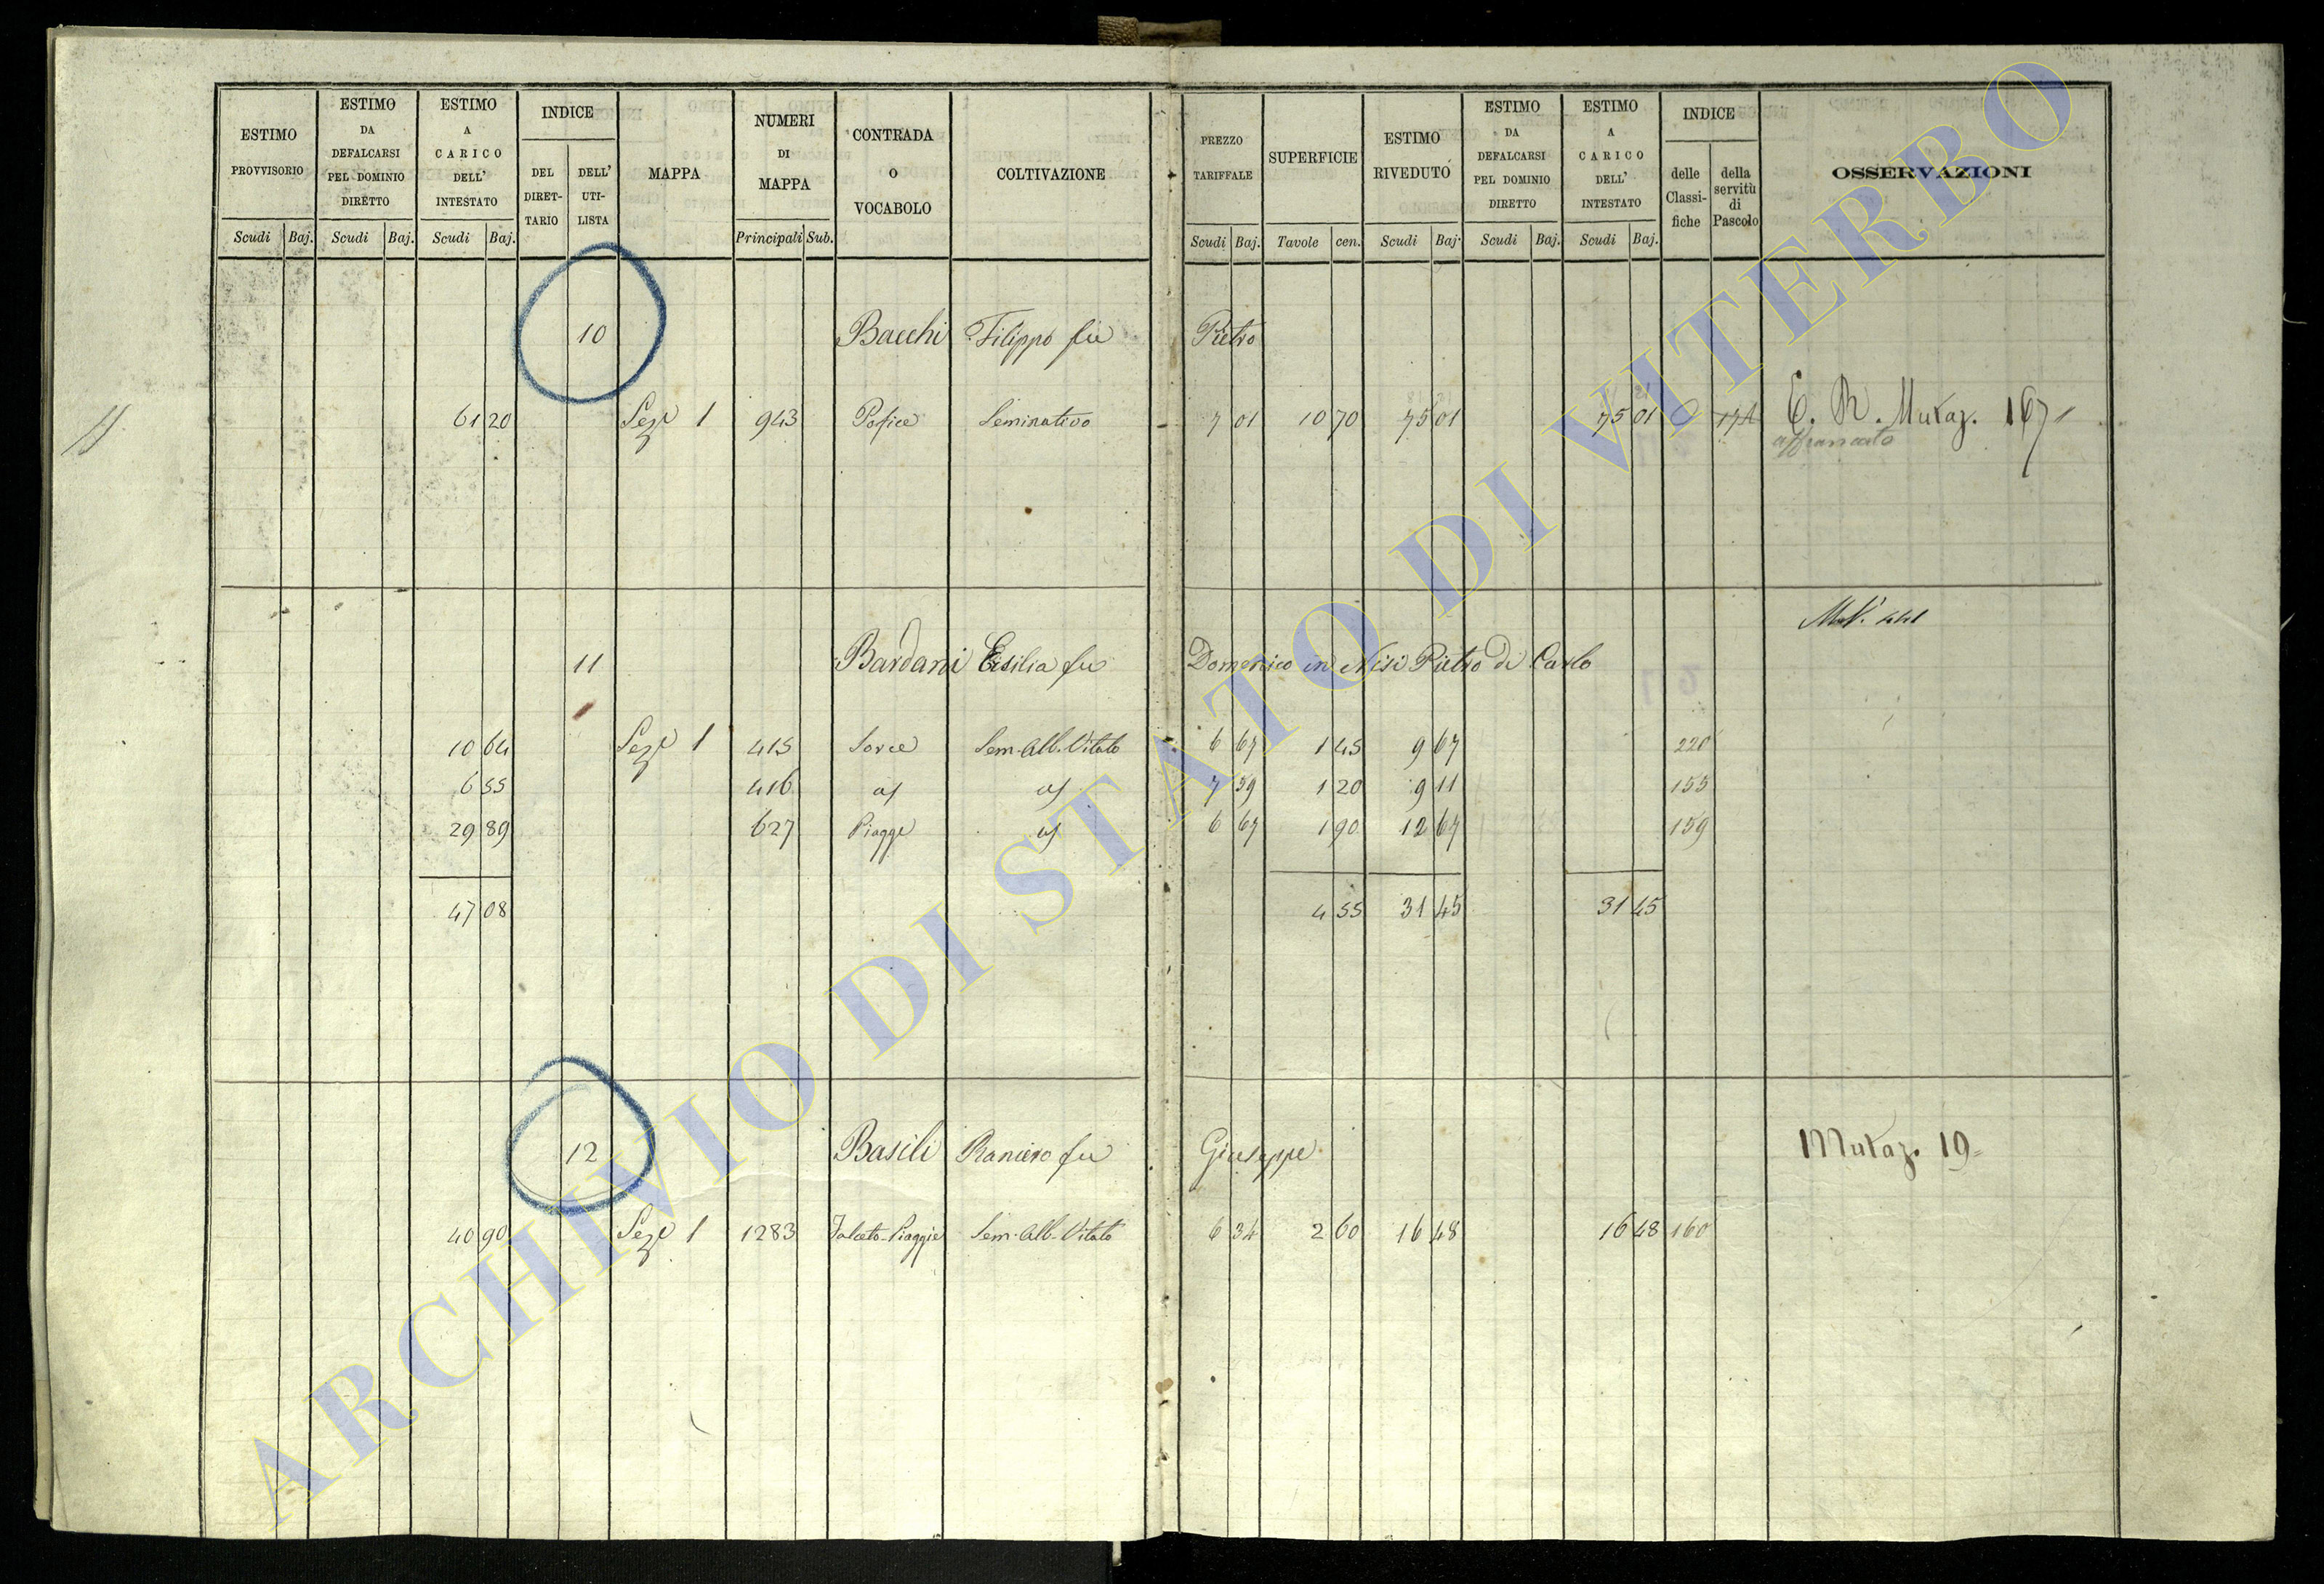 ESTIMO PROVVISORIO Scudi Baj.
ESTIMO DA DEFALCARSI PEL DOMINIO DIRETTO Scudi Baj.
ESTIMO A CARICO DELL' INTESTATO Scudi Baj.
INDICE DEL DIRET- TARIO DELL' UTI- LISTA
MAPPA
NUMERI DI MAPPA Principali Sub.
CONTRADA O VOCABOLO
COLTIVAZIONE
PREZZO TARIFFALE Scudi Baj.
SUPERFICIE Tavole cen.
ESTIMO RIVEDUTO Scudi Baj.
ESTIMO DA DEFALCARSI PEL DOMINIO DIRETTO Scudi Baj.
ESTIMO A CARICO DELL' INTESTATO Scudi Baj.
INDICE delle Classi- fiche della servitù di Pascolo
OSSERVAZIONI
10 Bacchi Filippo fu Pietro
61 20 Sez.e 1 943 Pofice Seminativo 7 01 10 70 75 01 75 01 E. R. Mutaz. 167
affrancato
Mut.
11 Bardani Ersilia fu Domenico in Nisi Pietro di Carlo
10 64 Sez.e 1 415 Sorce Sem. Alb. Vitato 6 67 1 45 9 67 220
6 55 416 7 59 1 20 9 11 155
29 89 627 Piagge 6 67 1 90 12 67 159
47 08 4 55 31 45 31 45
12 Basili Raniero fu Giuseppe Mutaz. 19
40 90 Sez.e 1 1283 Sem. Alb. Vitato 6 34 2 60 16 48 16 48 160
ARCHIVIO DI STATO DI VITERBO